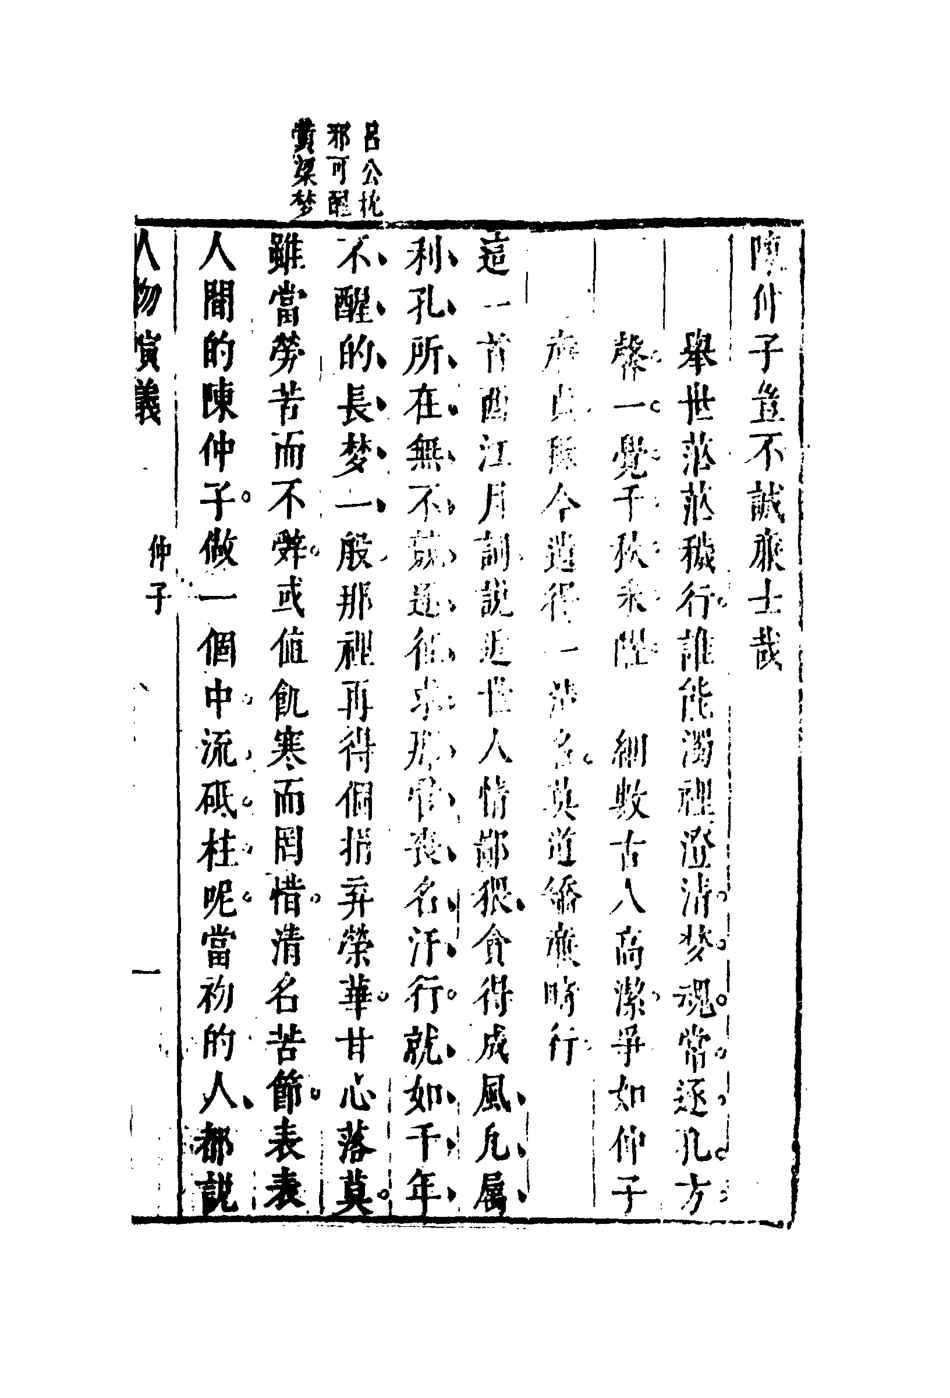 呂公枕
邪可醒
黃粱梦
陳仲子豈不誠廉士哉
舉世茫茫穢行誰能濁裡澄清梦魂常逐孔方
馨一覺千秋未醒　細數古人高潔爭如仲子
廉貞至今遺得一清名莫道矯廉時行
這一首西江月詞說近世人情鄙猥貪得成風凡屬
利孔所在無不兢逐徃求那管喪名汗行就如千年
不醒的長梦一般那裡再得個捐弃榮華甘心落莫
雖當勞苦而不辤或值飢寒而罔惜清名苦節表表
人間的陳仲子做一個中流砥柱呢當初的人都説
人物演義
仲子
一